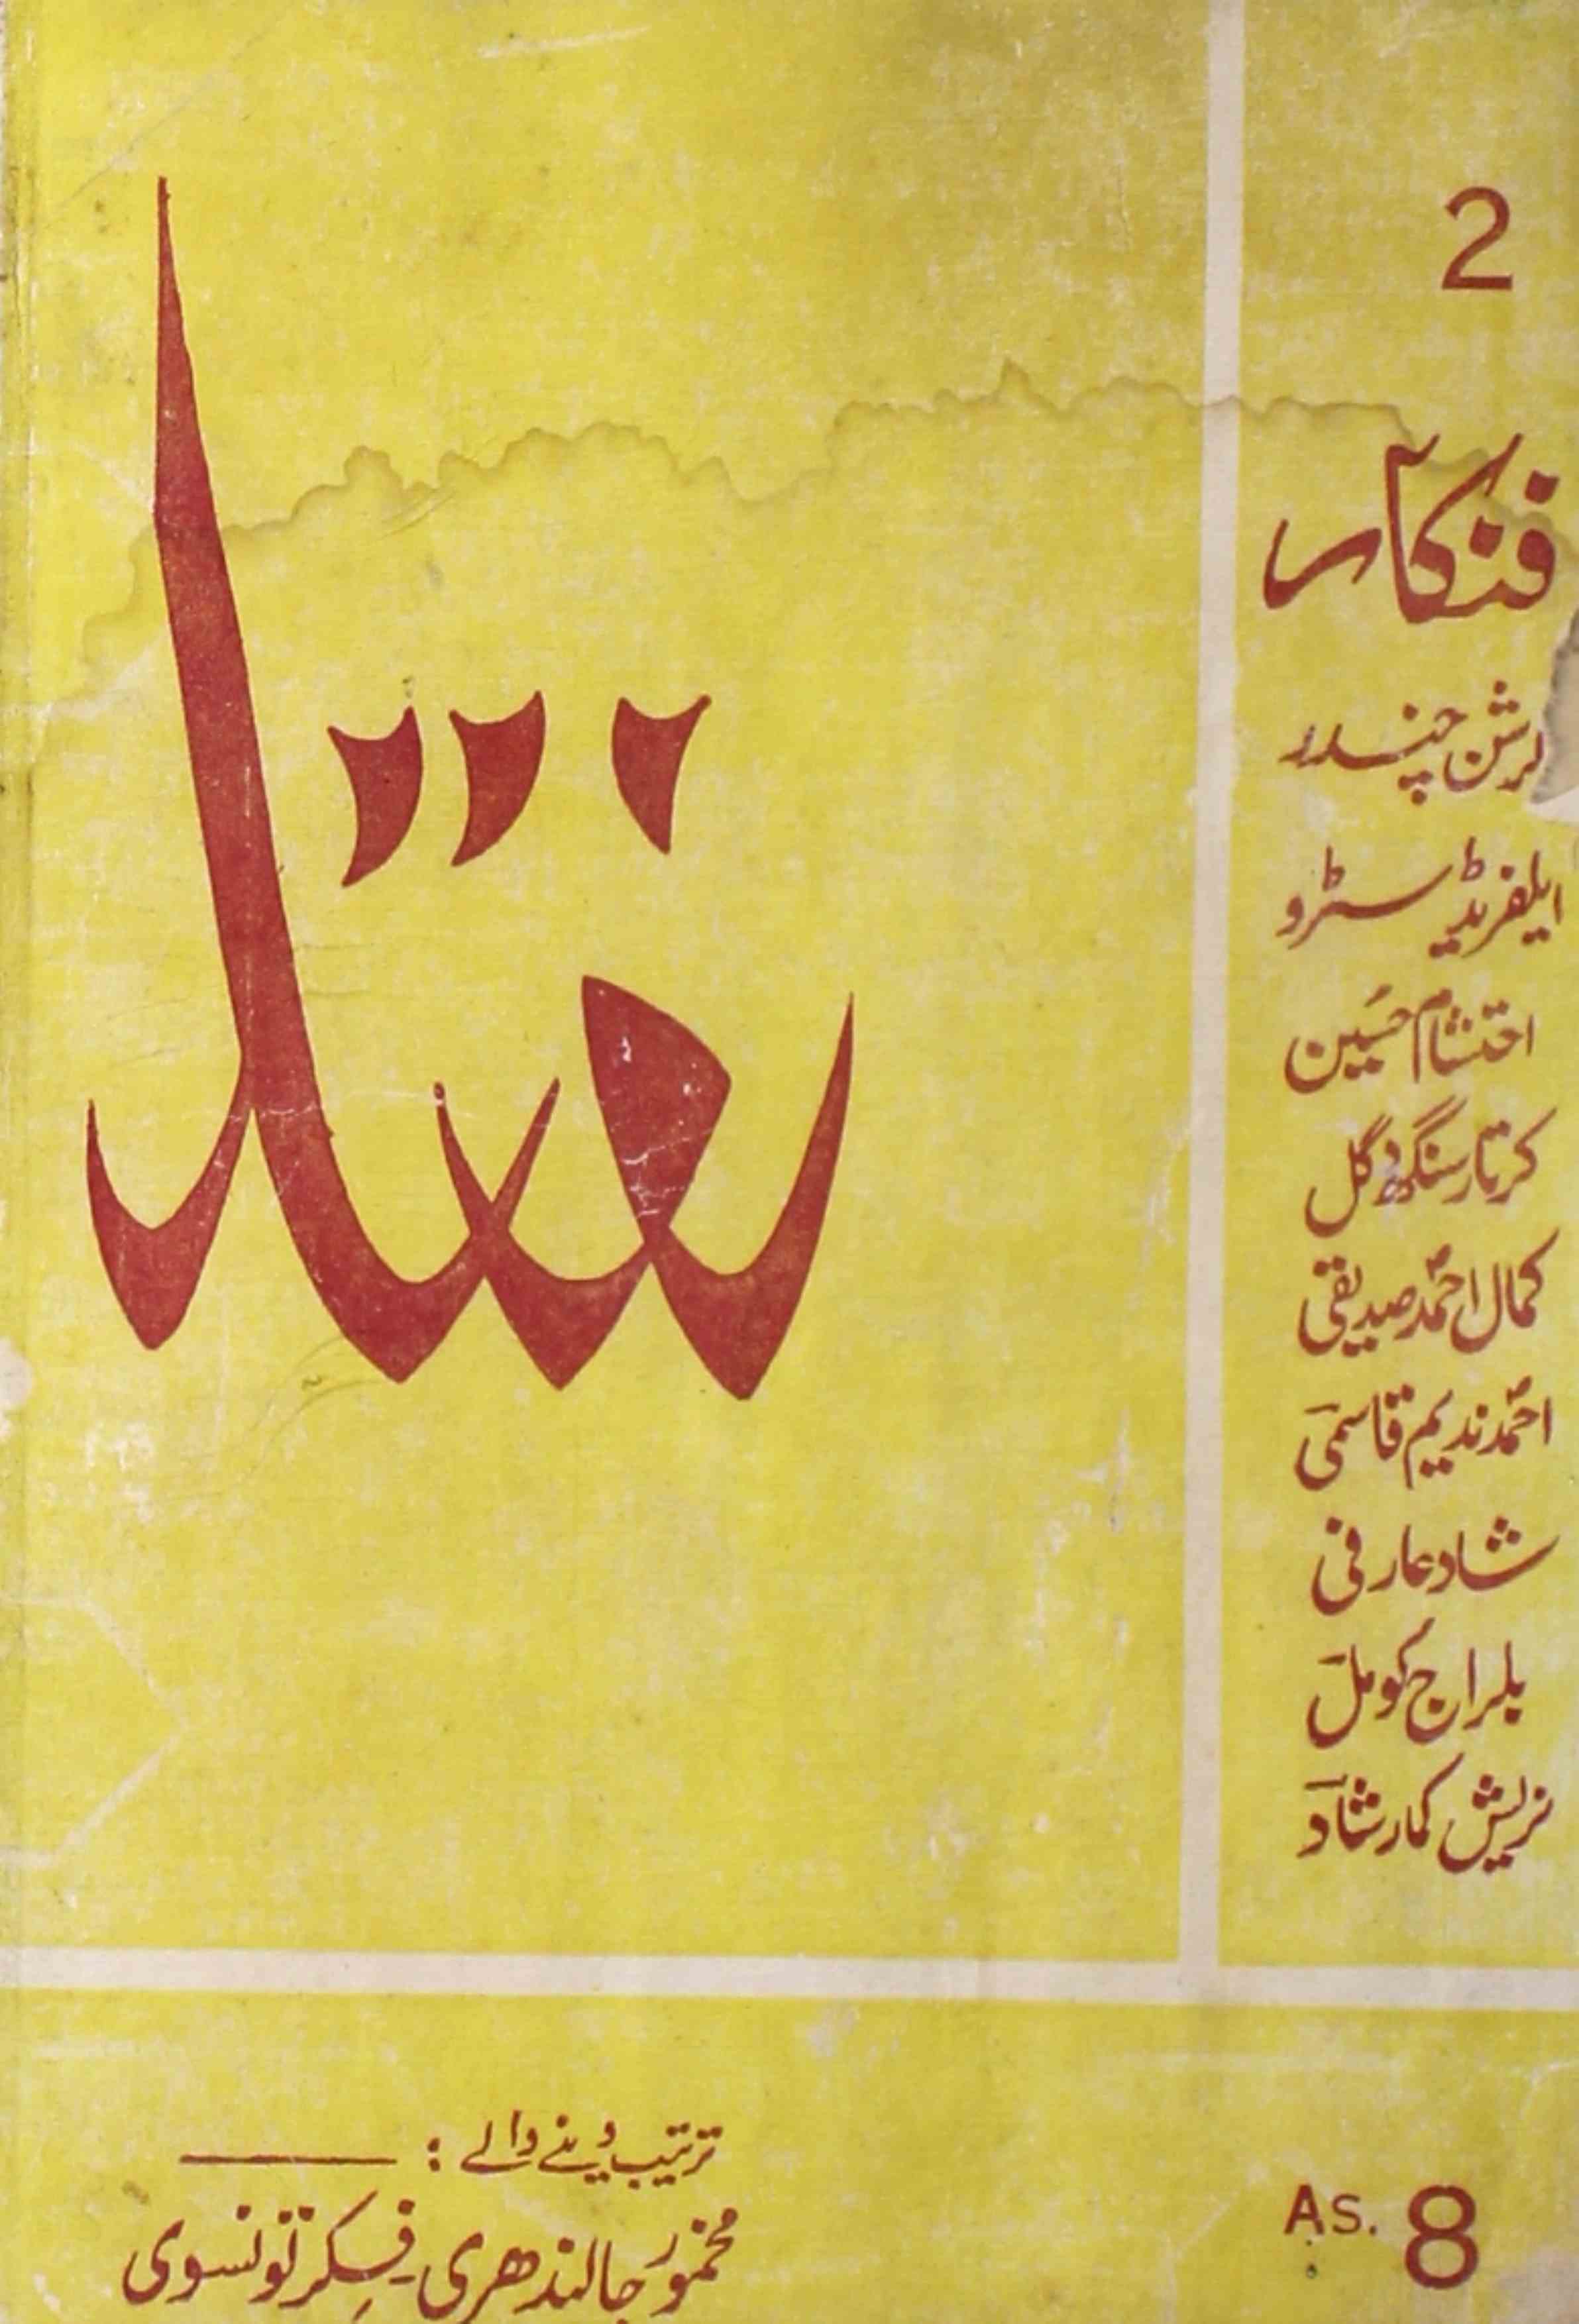 2
فنکار
کرشن چندر
ایلفریڈ سٹرو
احتشام حسین
کرتار سنگھ دگل
کمال احمد صدیقی
احمد ندیم قاسمی
شاد عارفی
بلراج کومل
نریش کمار شاد
نقاد
ترتیب دینے والے :
مخمور جالندھری ۔ فکر تونسوی
As. 8